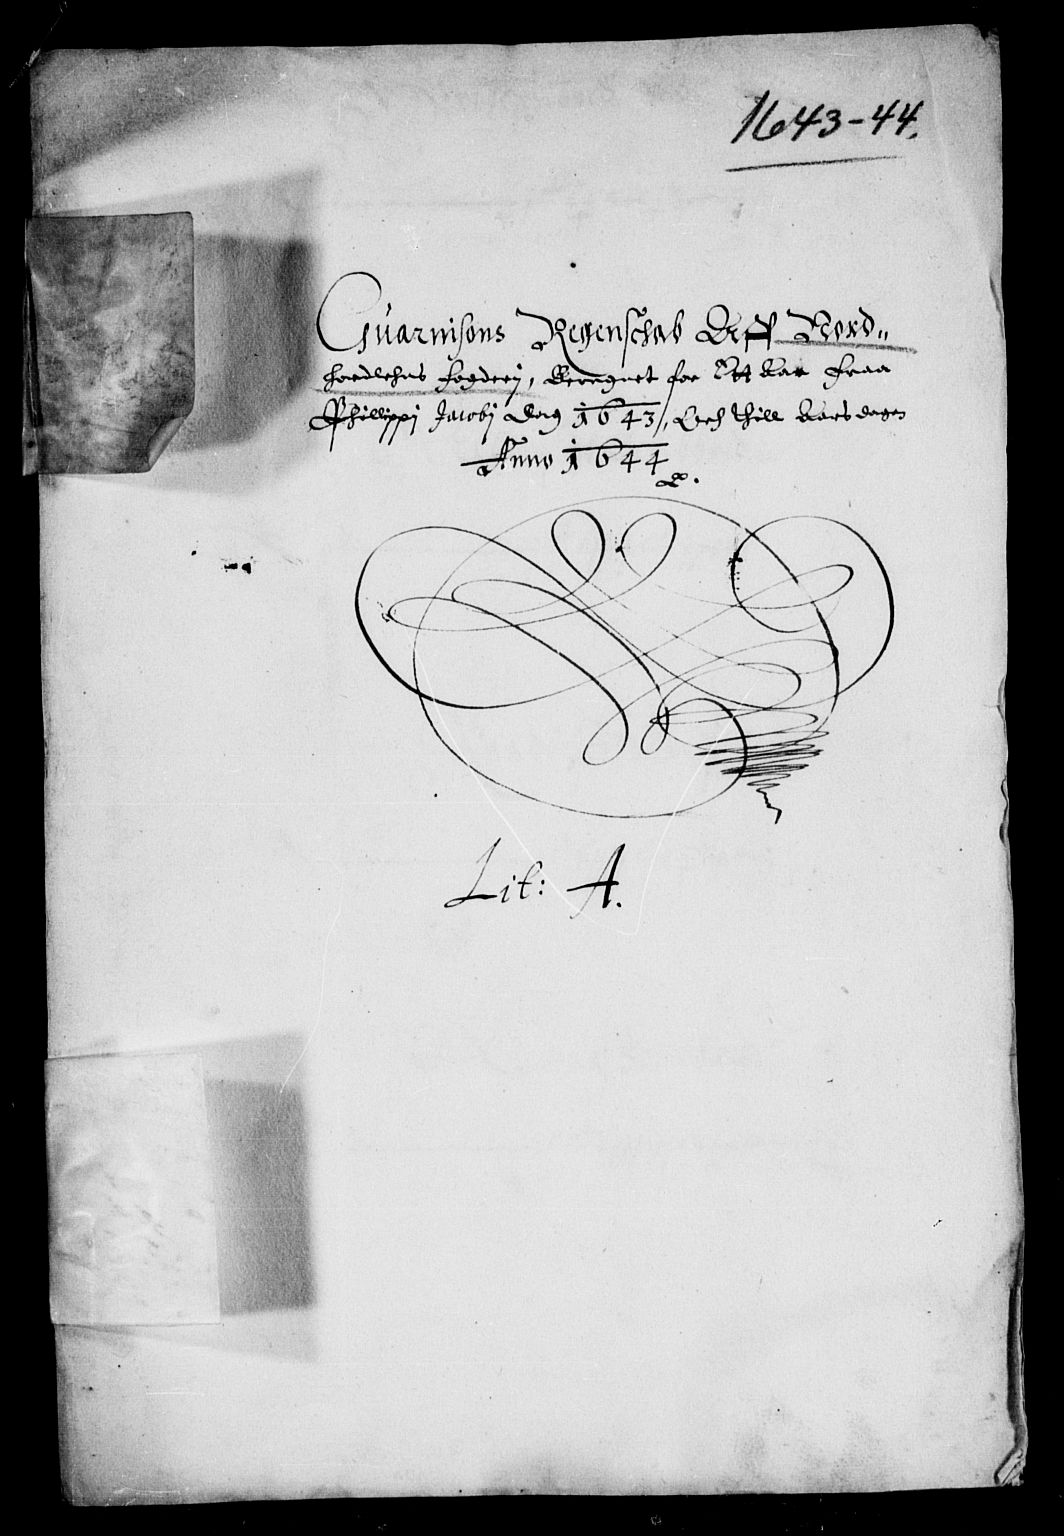 1643-44.
Guarnisons Regenschab Aff Nord„
hordlehns fogderij, Beregnet for Ett Aar fraa
Phillippi Jacobj Dag 1643, Och thill Aarsdagen
Anno 1644
Lit: A.